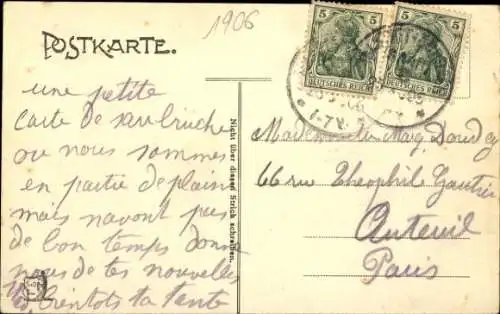 1906
POSTKARTE.
5 5
DEUTSCHES REICH
DEUTSCHES REICH
1-7V.
une petite
carte de
ou nous sommes
en partie de plaisir
mais navont pas
de bon temps donne
nous de tes nouvelles
bientots ta tante
Nicht über diesen Strich schreiben.
Mademoiselle Mag.
66 rue Théophil Gautier
Auteuil
Paris